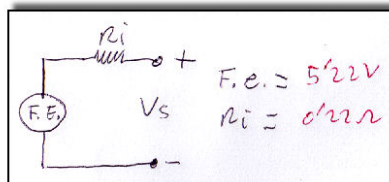 Ri
+
F.E.
Vs
-
F.e. = 5'22V
Ri = 0'22Ω